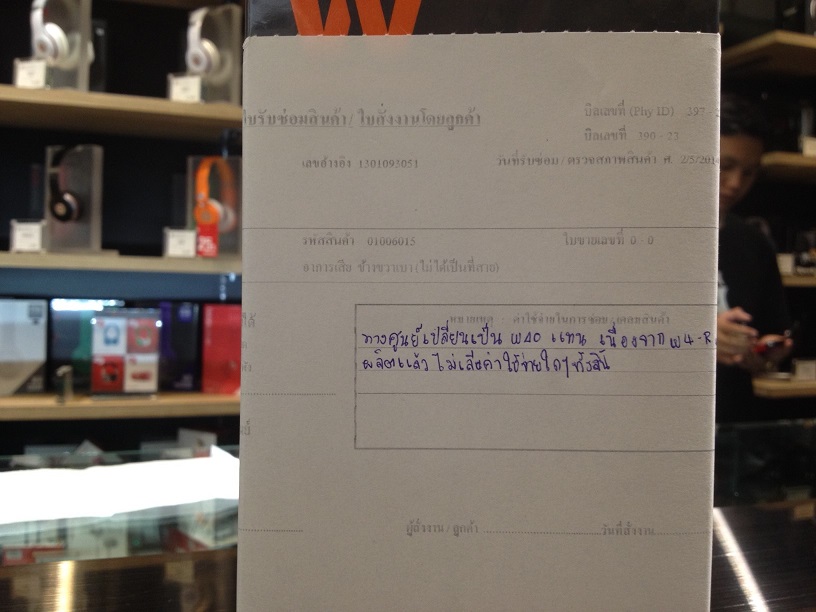 ใบรับซ่อมสินค้า/ ใบสั่งงานโดยลูกค้า
บิลเลขที่ (Phy ID) 397 -
บิลเลขที่ 390 - 23
เลขอ้างอิง 1301093051
วันที่รับซ่อม / ตรวจสภาพสินค้า ศ. 2/5/201
รหัสสินค้า 01006015
ใบขายเลขที่ 0 - 0
อาการเสีย ข้างขวาเบา (ไม่ได้เป็นที่สาย)
หมายเหตุ
ทางศูนย์เปลี่ยนเป็น W40 แทน เนื่องจาก W4-R
ผลิตแล้ว ไม่เสียค่าใช้จ่ายใดๆทั้งสิ้น
ผู้สั่งงาน / ลูกค้า
วันที่สั่งงาน